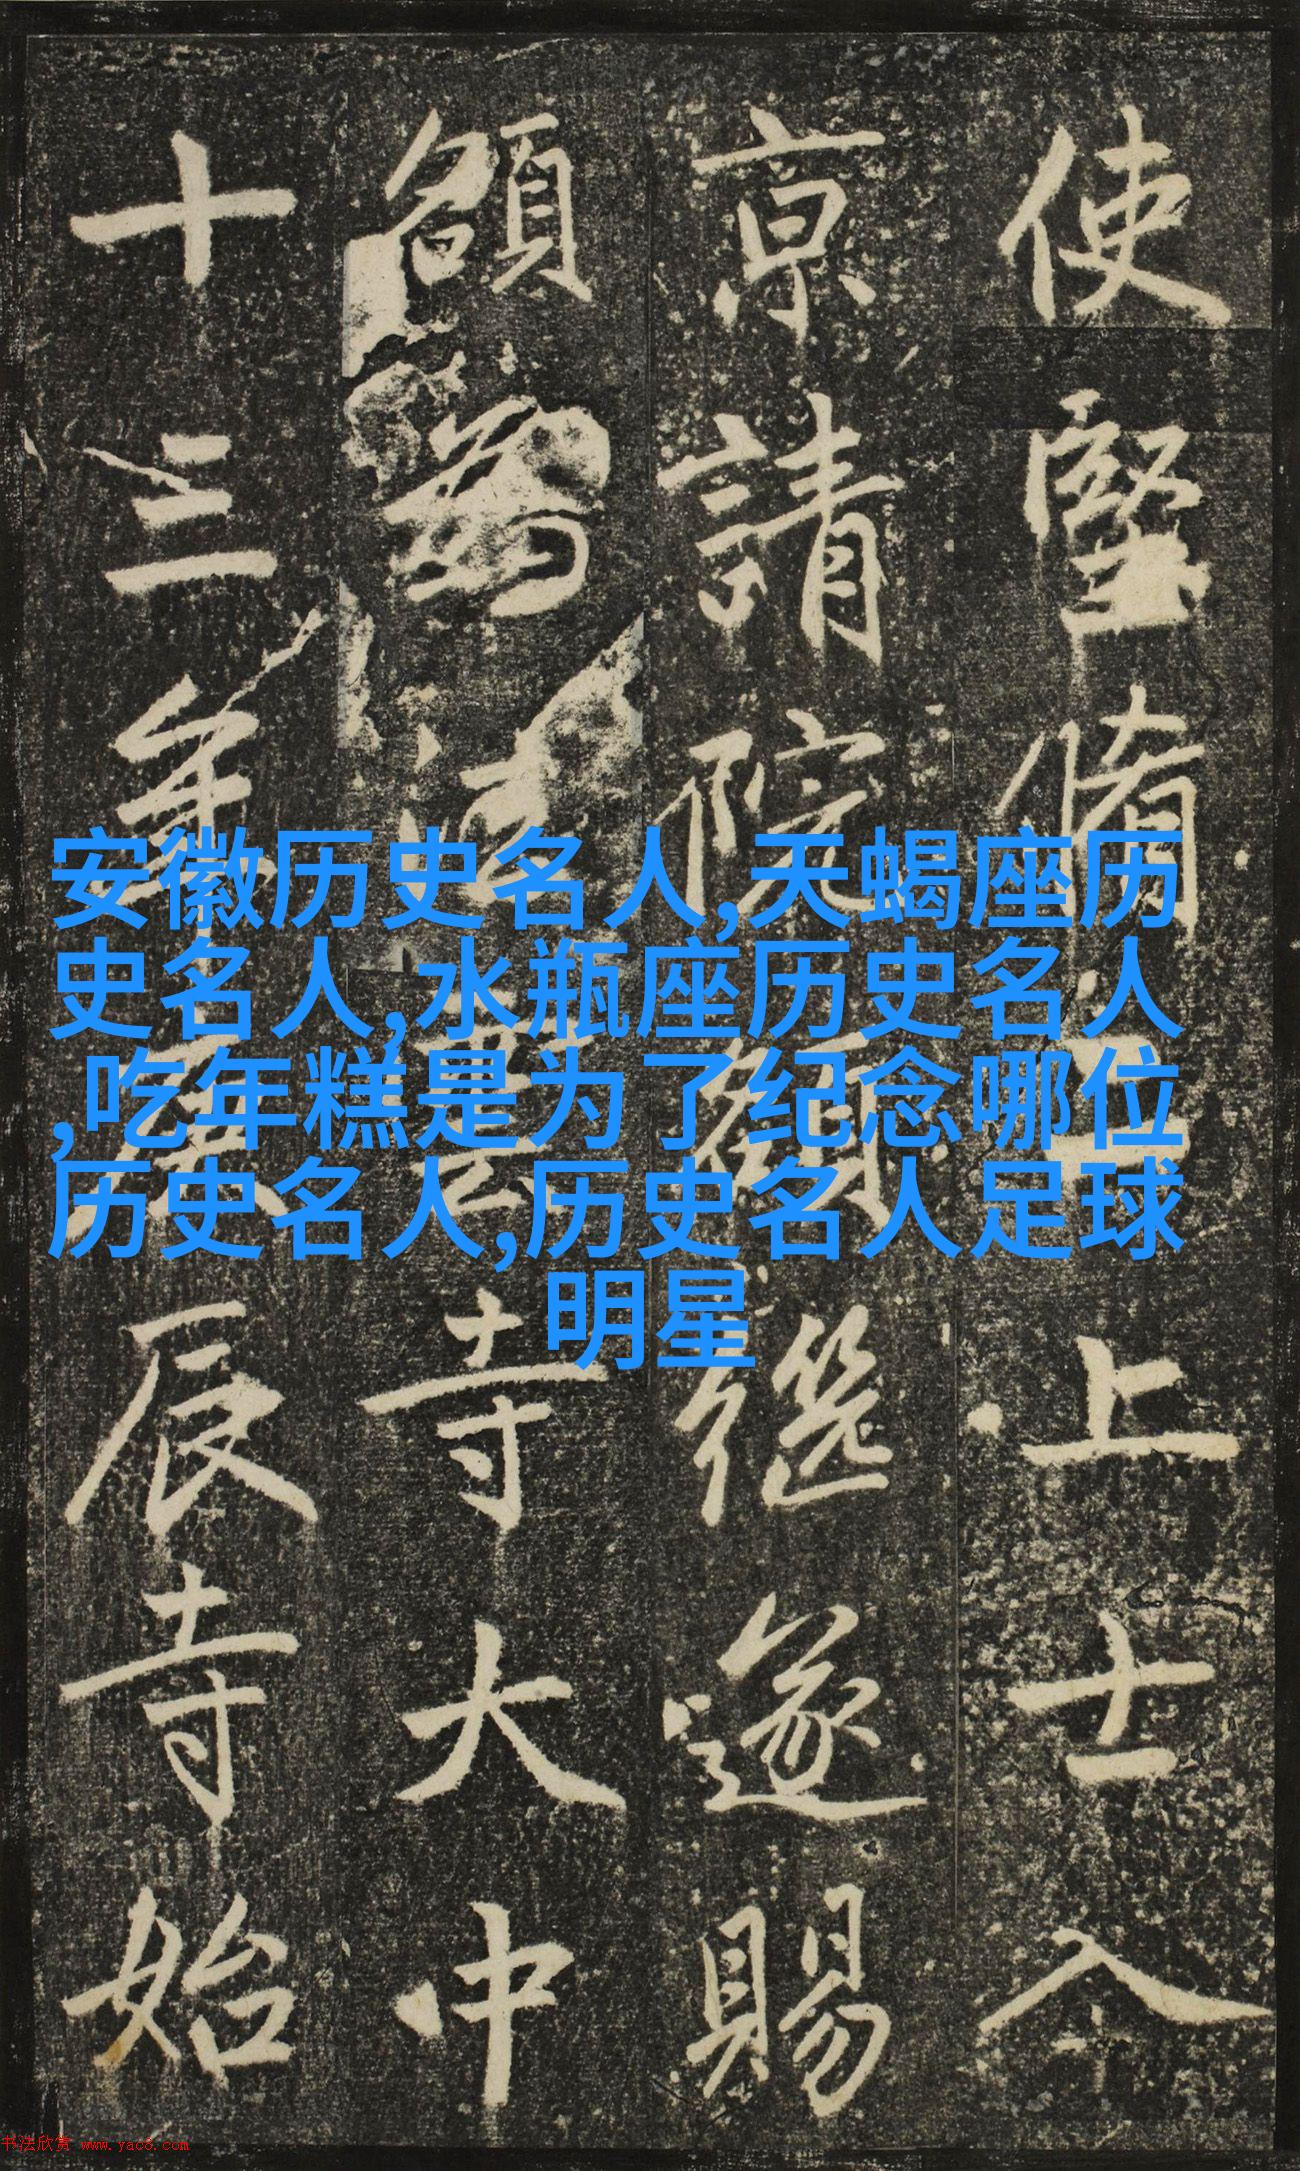 使堅脩上士入
京請院額繼遂賜
額為法雲寺大中
十三年庚辰寺始
安徽历史名人,天蝎座历
史名人,水瓶座历史名人
,吃年糕是为了纪念哪位
历史名人,历史名人足球
明星
书法欣赏 www.yac8.com